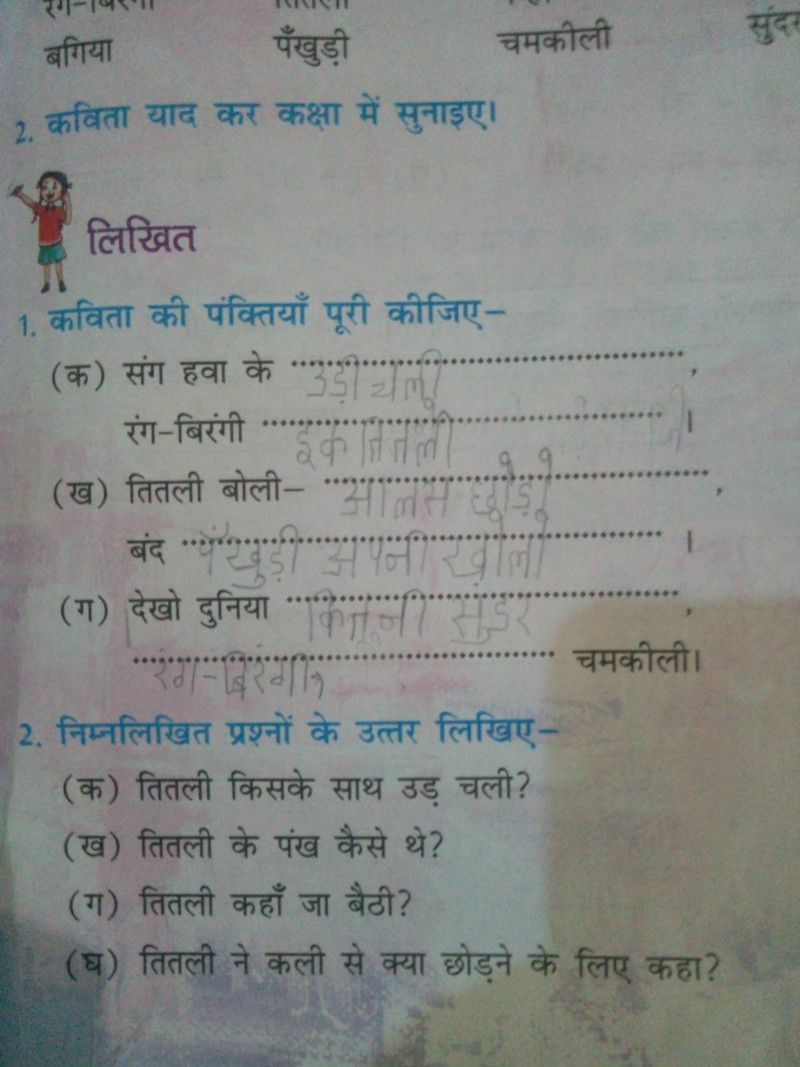 रंग-बिरंगी तितली
बगिया पँखुड़ी चमकीली सुंदर
2. कविता याद कर कक्षा में सुनाइए।
लिखित
1. कविता की पंक्तियाँ पूरी कीजिए–
(क) संग हवा के उड़ी चली,
रंग-बिरंगी इक तितली।
(ख) तितली बोली– आलस छोड़ो,
बंद पँखुड़ी अपनी खोलो।
(ग) देखो दुनिया कितनी सुंडर,
रंग-बिरंगी, चमकीली।
2. निम्नलिखित प्रश्नों के उत्तर लिखिए–
(क) तितली किसके साथ उड़ चली?
(ख) तितली के पंख कैसे थे?
(ग) तितली कहाँ जा बैठी?
(घ) तितली ने कली से क्या छोड़ने के लिए कहा?